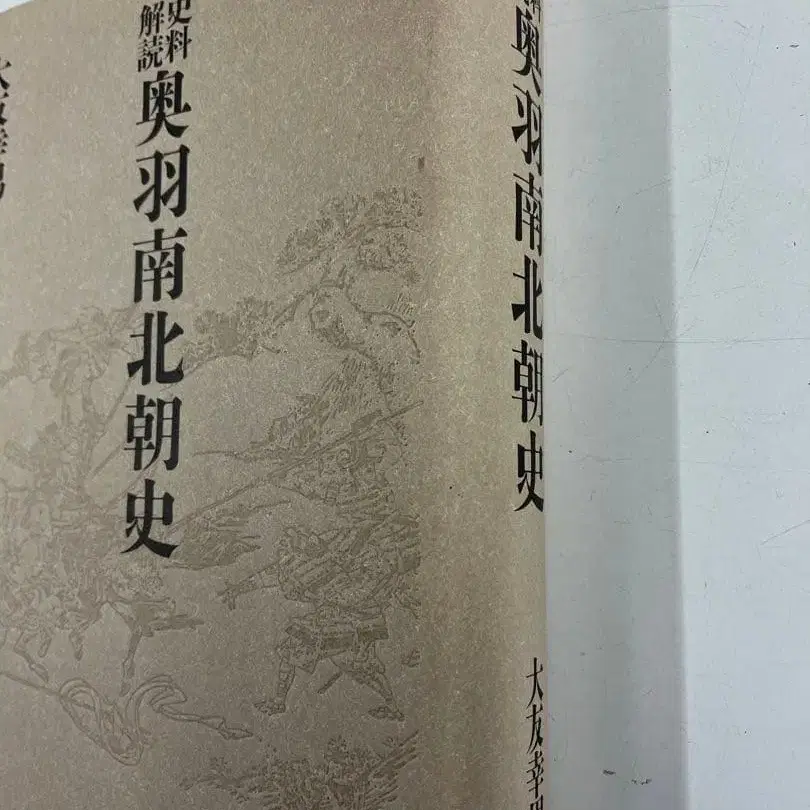 史料
解読
奥羽南北朝史
大友幸
奥羽南北朝史
大友幸